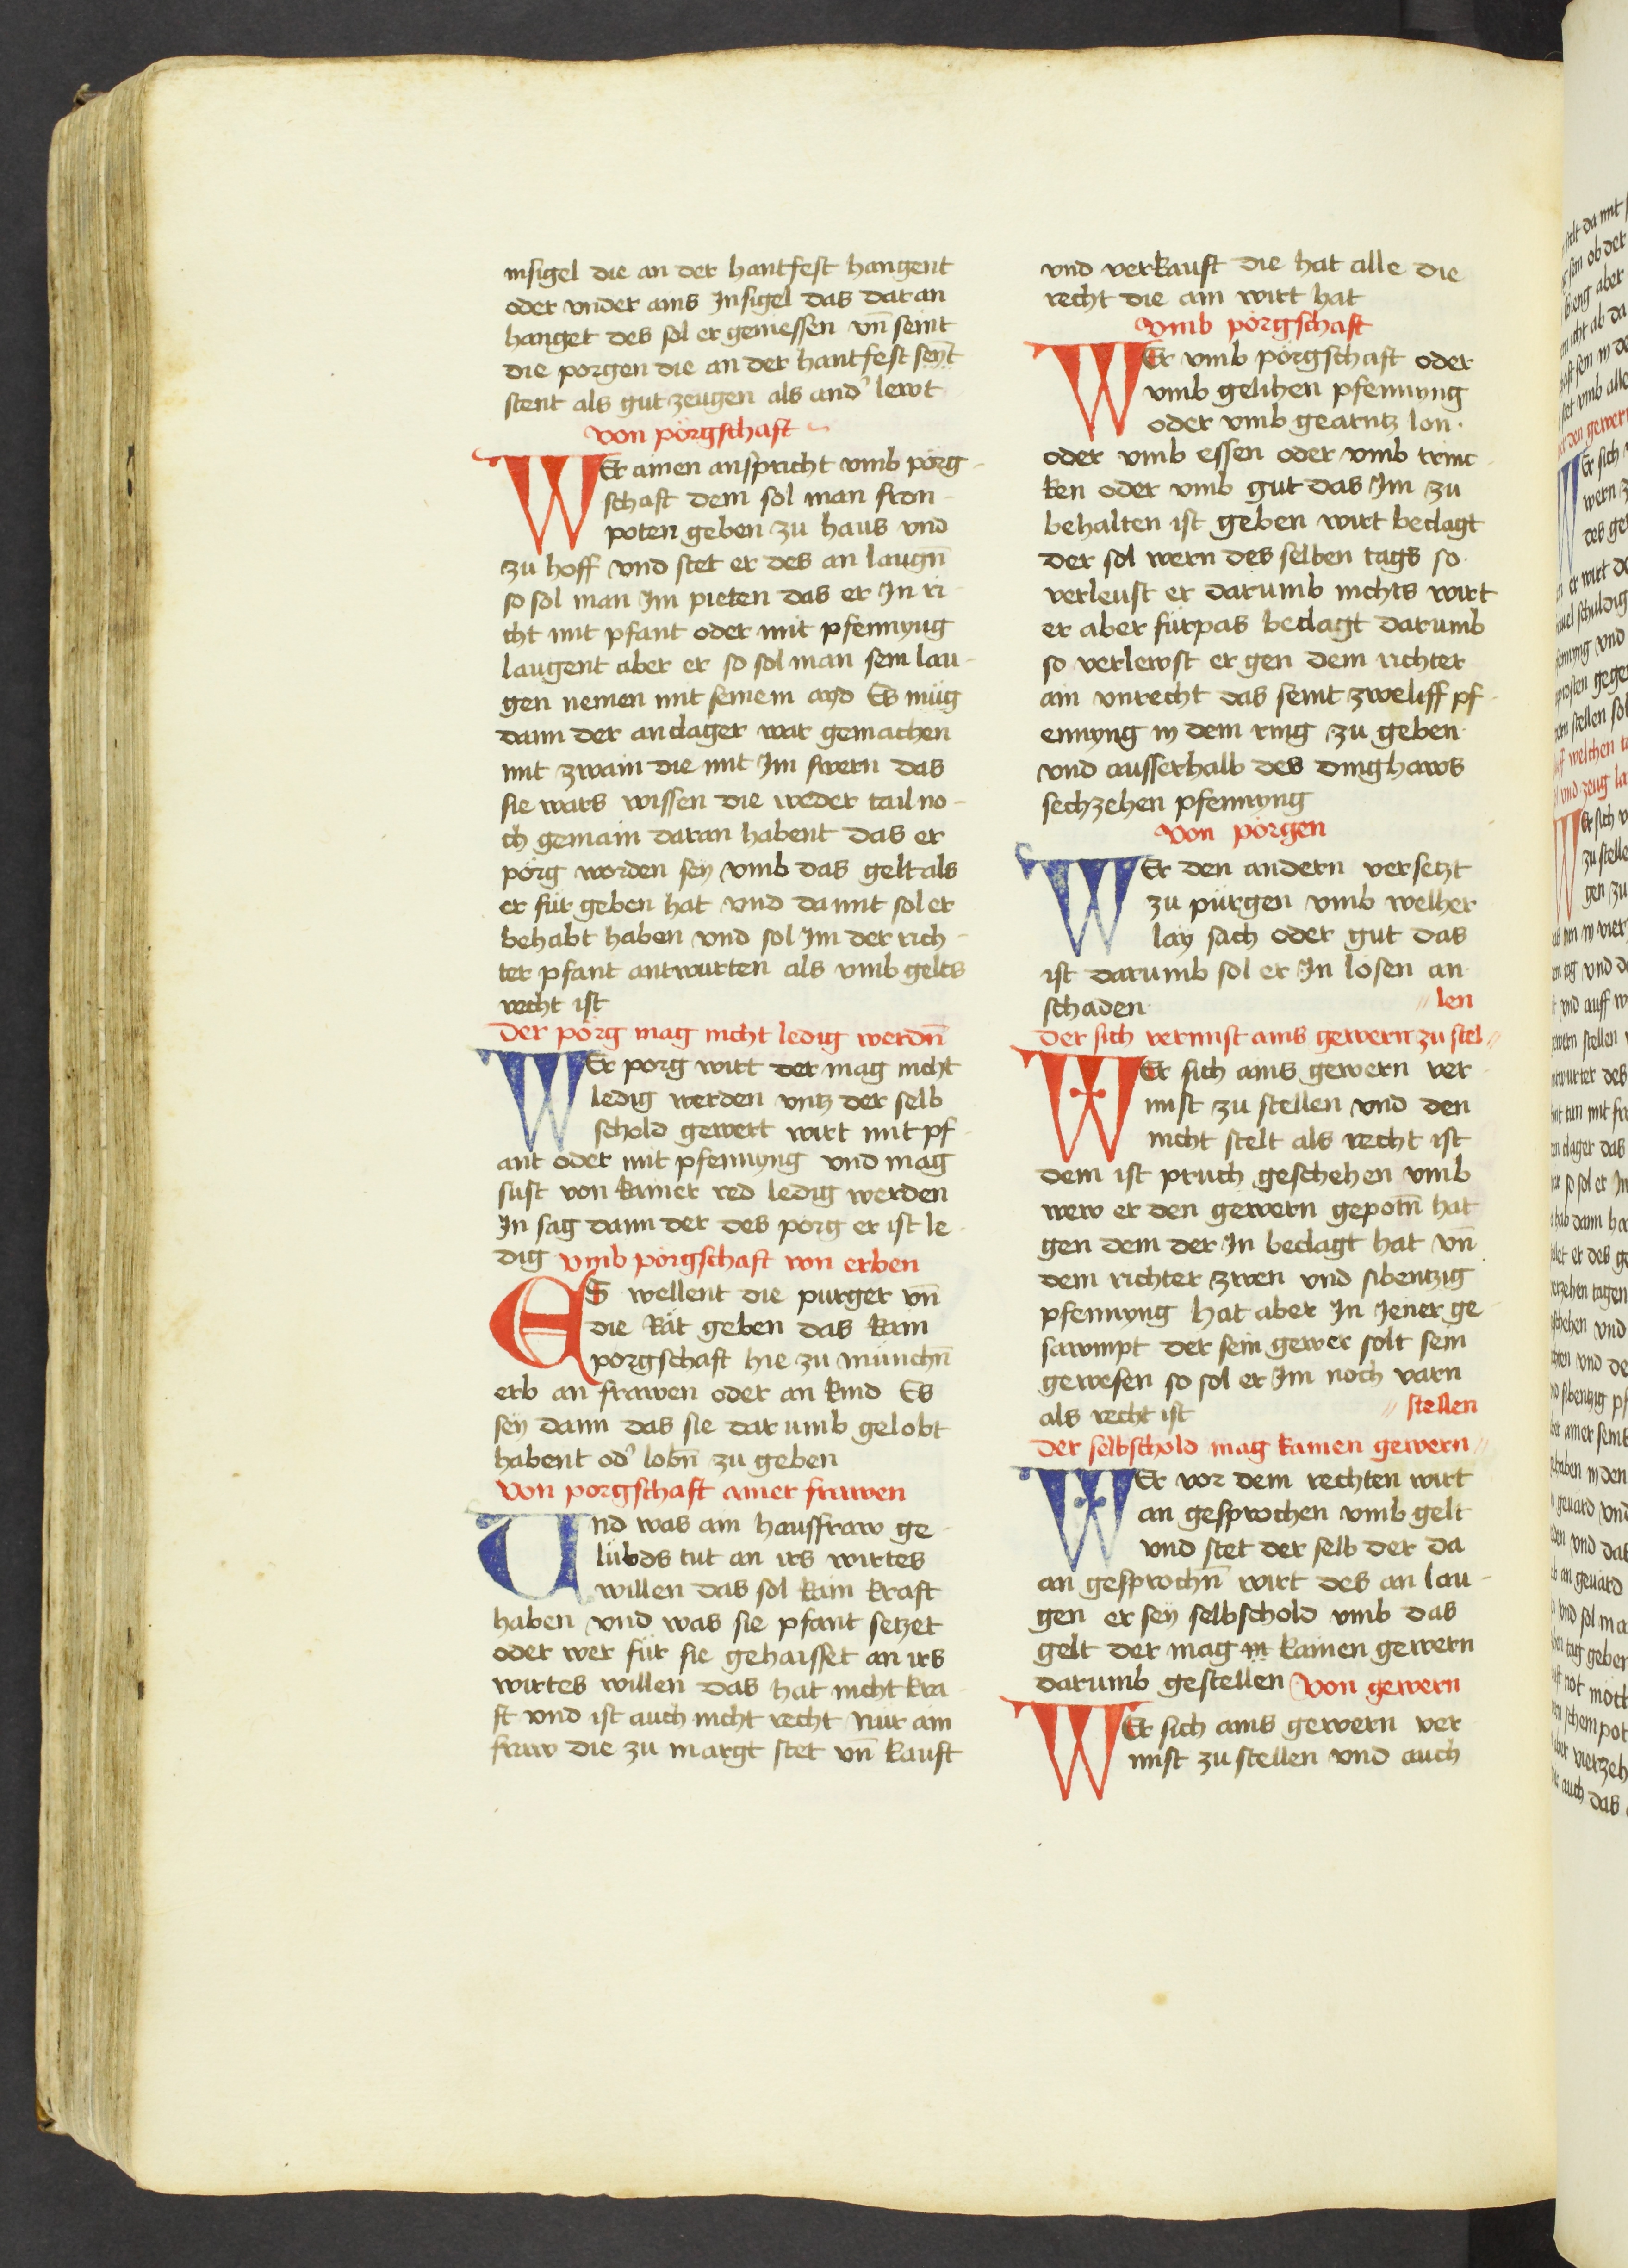 insigel die an der hantfest hangent
oder vnder ains Insigel das daran
hanget des sol er geniessen vn̄ seint
die porgen die an der hantfest seyt
stent als gut zeugen als and' lewt
von porgschaft
WEr ainen anspricht vmb porg-
schaft dem sol man fron-
poten geben zu haus vnd
zu hoff vnd stet er des an laugn̄
so sol man Im pieten das er In ri-
cht mit pfant oder mit pfennyng
laugent aber er so sol man sein lau-
gen nemen mit seinem ayd Es müg
dann der anclager war gemachen
mit zwain die mit Im swern das
sie wars wissen die weder tail no-
ch gemain daran habent das er
pörg worden sey vmb das gelt als
er für geben hat vnd da mit sol er
behabt haben vnd sol Im der rich-
ter pfant antwurten als vmb gelts
recht ist
Der pörg mag nicht ledig werdn̄
WEr porg wirt der mag nicht
ledig werden vntz der selb
schold gewert wirt mit pf-
ant oder mit pfennyng vnd mag
sust von kainer red ledig werden
In sag dann der des pörg er ist le-
dig vmb porgschaft von erben
ES wellent die purger vn̄
die Rät geben das kain
porgschaft hie zu münchn̄
erb an frawen oder an kind Es
sey dann das sie darumb gelobt
habent od' lobn̄ zu geben
Von porgschaft ainer frawen
Vnd was ain hausfraw ge-
lübds tut an irs wirtes
willen das sol kain kraft
haben vnd was sie pfant setzet
oder wer für sie gehaisset an irs
wirtes willen das hat nicht kra-
ft vnd ist auch nicht recht Nur ain
fraw die zu margt stet vn̄ kauft
vnd verkauft die hat alle die
recht die ain wirt hat
vmb pörgschaft
WEr vmb pörgschaft oder
vmb gelihen pfennyng
oder vmb gearntz lon.
oder vmb essen oder vmb trinc-
ken oder vmb gut das Im zu
behalten ist geben wirt beclagt
der sol wern des selben tags so
verleust er darumb nichts wirt
er aber fürpas beclagt darumb
so verlewst er gen dem richter
ain vnrecht das seint zweliff pf-
ennyng in dem ring zu geben
vnd ausserhalb des dinghaws
sechzehen pfennyng
Von pörgen
WEr den andern versetzt
zu pürgen vmb welher
lay sach oder gut das
ist darumb sol er In lösen an
schaden
Der sich vermist ains gewern zu stel-
len
WEr sich ains gewern ver-
mist zu stellen vnd den
nicht stelt als recht ist
dem ist pruch geschehen vmb
wew er den gewern gepotn̄ hat
gen dem der In beclagt hat vn̄
dem richter zwen vnd sibentzig
pfennyng hat aber In Jener ge-
sawmpt der sein gewer solt sein
gewesen so sol er Im noch varn
als recht ist
Der selbschold mag kainen gewern
stellen
WEr vor dem rechten wirt
an gesprochen vmb gelt
vnd stet der selb der da
an gesprochn̄ wirt des an lau-
gen er sey selbschold vmb das
gelt der mag in kainen gewern
darumb gestellen Von gewern
WEr sich ains gewern ver-
mist zu stellen vnd auch